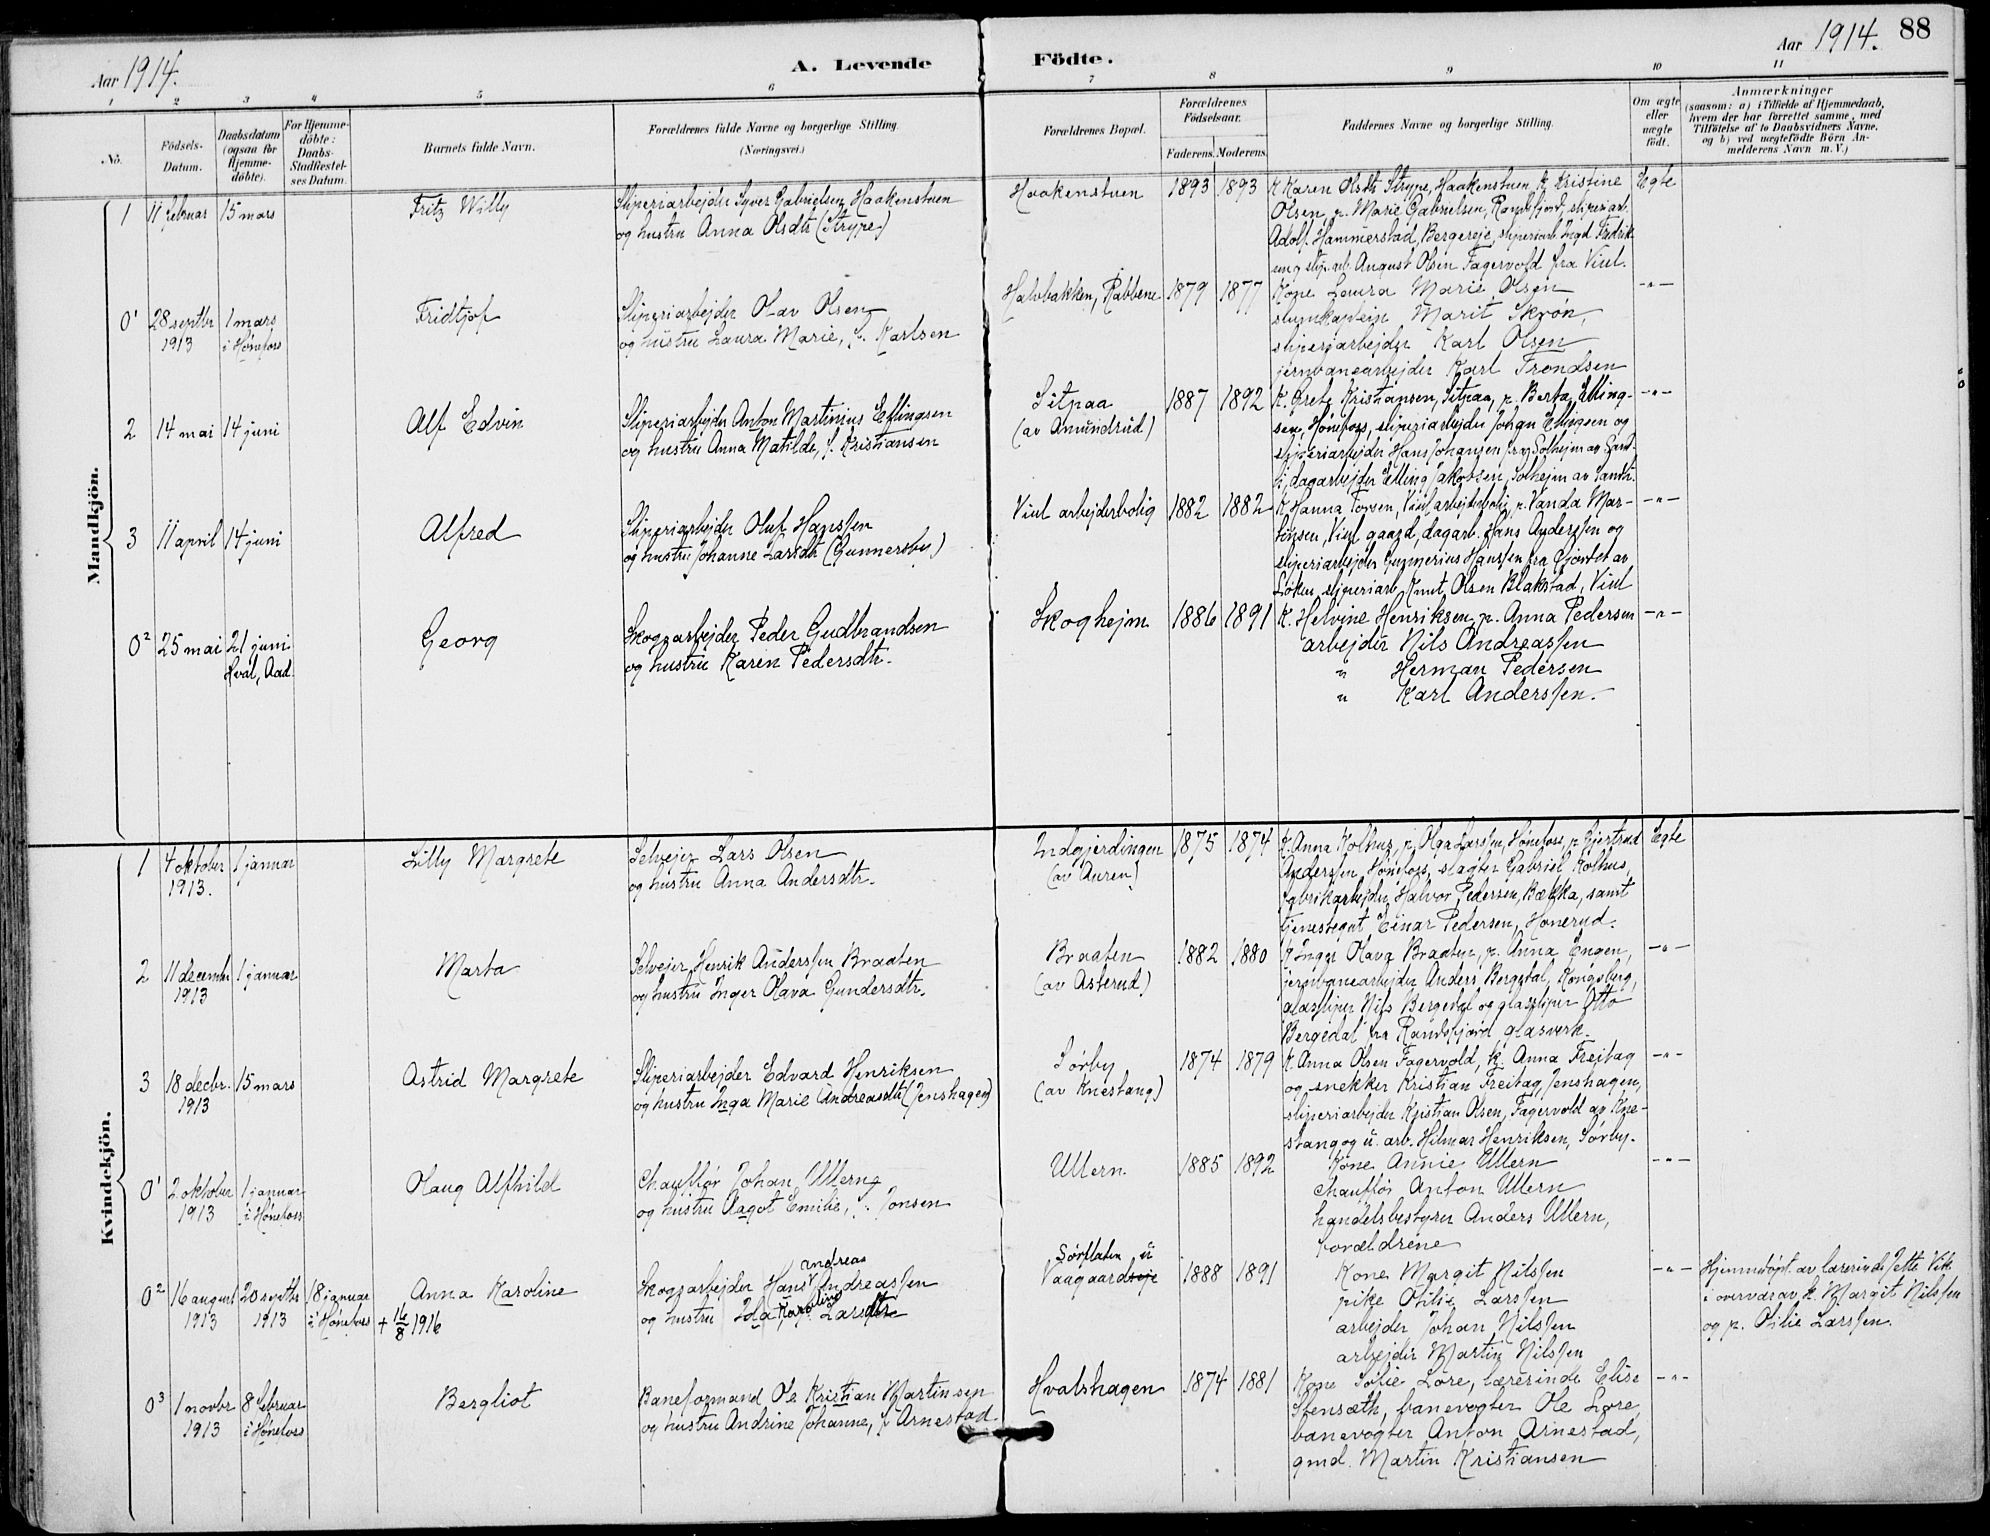 Aar 1914.
A. Levende
Födte.
Aar 1914.
88
1 2 3 4 5 6 7 8 9 10 11
No.
Födsels-
Datum.
Daabsdatum
(ogsaa for
Hjemme-
döbte).
For Hjemme-
döbte:
Daabs-
Stadfæstel-
ses Datum.
Barnets fulde Navn.
Forældrenes fulde Navne og borgerlige Stilling
(Næringsvei.)
Forældrenes Bopæl.
Forældrenes
Födselsaar.
Faderens. Moderens.
Faddernes Navne og borgerlige Stilling.
Om ægte
eller
uægte
födt.
Anmærkninger
(saasom: a) i Tilfælde af Hjemmedaab,
hvem der har forrettet samme, med
Tilföielse af to Daabsvidners Navne,
og b) ved uægtefödte Börn An-
melderens Navn m. V.)
Mandkjön.
1 11 februar 15 mars
Fritz Willy
Sliperiarbejder Syver Gabrielsen Haakenstuen
og hustru Anna Olsdtr (Strype)
Haakenstuen 1893 1893
K Karen Olsdtr Strype, Haakenstuen, K. Kristine
Olsen, p. Marie Gabrielsen, Randsfjord, sliperiarb.
Adolf Hammerstad, Bergereje, sliperiarb. Fredrik
slip.arb. August Olsen Fagervold fra Viul.
Egte
0¹ 28 septbr 1 mars
1913 i Hönefoss
Fridtjof
Sliperiarbejder Olav Olsen
og hustru Laura Marie, f. Karlsen
Halvbakken, Rabbene 1879 1877
Kone Laura Marie Olsen
Marit Skrøn,
sliperiarbejder Karl Olsen
jernbanearbejder Karl Trondsen
-"-
2 14 mai 14 juni
Alf Edvin
Sliperiarbejder Anton Martinius Ellingsen
og hustru Anna Matilde, f. Kristiansen
Sitpaa 1887 1892
(av Amundrud)
K. Grete Kristiansen, Sitpaa, p. Berta Elling-
sen, Hönefoss, sliperiarbejder Johan Ellingsen og
sliperiarbejder Hans Johansen Solhejm av
dagarbejder Elling Jakobsen, Solhejm av
-"-
3 11 april 14 juni
Alfred
Sliperiarbejder Oluf Hanssen
og hustru Johanne Larsdtr (Gunnersby)
Viul arbejderbolig 1882 1882
K Hanna Viul arbejderbolig, p. Vanda Mar-
tinsen, Viul gaard, dagarb. Hans Anderssen og
sliperiarbejder Gunnerius Hanssen fra av
Löken, sliperiarb. Knut Olsen Blakstad, Viul
-"-
0² 25 mai 21 juni
Hval, Aad.
Georg
Skogsarbejder Peder Gudbrandsen
og hustru Karen Pedersdtr.
Skoghejm 1886 1891
K. Helvine Henriksen, p. Anna Pedersen
arbejder Nils Andreassen
" Herman Pedersen
" Karl Anderssen.
-"-
Kvindekjön.
1 4 oktober 1 januar
1913.
Lilly Margrete
Selvejer Lars Olsen
og hustru Anna Andersdtr.
Indgjerdingen 1875 1874
(av Auren)
K. Anna Kolhus, p. Olga Larssen, Hönefoss, p. Gjertrud
Anderssen, Hönefoss, slagter Gabriel Kolhus,
fabrikarbejder Halvor Pedersen, Bækka, samt
tjenestegut Einar Pedersen, Honerud.
Egte
2 11 decembr 1 januar
1913
Marta
Selvejer Henrik Anderssen Braaten
og hustru Inger Olava Gundersdtr.
Braaten 1882 1880
(av Asterud)
K Inger Olava Braaten, p. Anna Engen,
jernbanearbejder Anders Bergedal, Kongsberg,
glassliper Nils Bergedal og glassliper Otto
Bergedal fra Randsfjord glasverk.
-"-
3 18 decbr. 15 mars
1913
Astrid Margrete
Sliperiarbejder Edvard Henriksen
og hustru Inga Marie Andreasdtr (Jenshagen)
Sörby 1874 1879
(av Knestang)
K. Anna Olsen Fagervold, K. Anna Freitag
og snekker Kristian Freitag, Jenshagen,
sliperiarbejder Kristian Olsen, Fagervold av Kne-
stang og u. arb. Hilmar Henriksen, Sörby.
-"-
0¹ 2 oktober 1 januar
1913 i Hönefoss
Olaug Alfhild
Chauffør Johan Ullern
og hustru Aagot Emilie, f. Jonsen
Ullern 1885 1892
Kone Annie Ullern
chauffør Anton Ullern
handelsbestyrer Anders Ullern,
forældrene
-"-
0² 16 august 20 septbr 18 januar
1913 1913 i Hönefoss
Anna Karoline
+ 16/8 1916
Andreas
Skogsarbejder Hans Andreassen
og hustru Ida Karoline Larsdtr
Sörflaten u
Vaagaardseje 1888 1891
Kone Margit Nilssen
pike Otilie Larssen
arbejder Johan Nilssen
arbejder Martin Nilssen
-"-
Hjemmedöpt av lærerinde Jette Vik
i overvær av k. Margit Nilssen
og p. Otilie Larssen.
0³ 1 novbr 8 februar
1913 i Hönefoss
Bergliot
Baneformand Ole Kristian Martinsen
og hustru Andrine Johanne, f. Arnestad
Hvalshagen 1874 1881
Kone Sofie Lore, lærerinde Elise
Stensæth, banevogter Ole Lore,
banevogter Anton Arnestad,
gmd. Martin Kristiansen
-"-